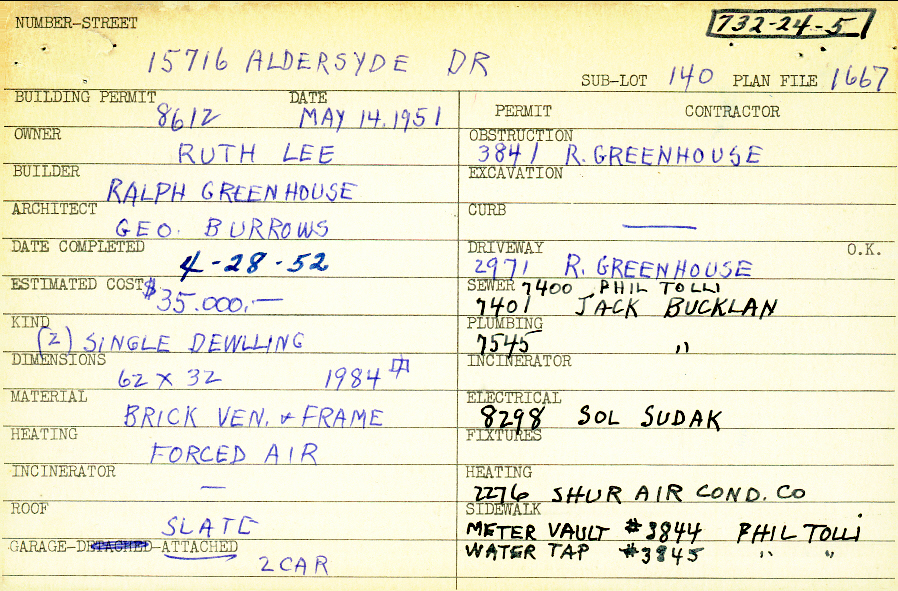 NUMBER-STREET
732-24-5
15716 ALDERSYDE DR
SUB-LOT 140 PLAN FILE 1667
BUILDING PERMIT DATE
8612 MAY 14.1951
OWNER
RUTH LEE
BUILDER
RALPH GREENHOUSE
ARCHITECT
GEO. BURROWS
DATE COMPLETED
4-28-52
ESTIMATED COST
$35.000.—
KIND
(2) SINGLE DEWLLING
DIMENSIONS
62 X 32 1984
MATERIAL
BRICK VEN. & FRAME
HEATING
FORCED AIR
INCINERATOR
—
ROOF
SLATE
GARAGE-DETACHED-ATTACHED
2 CAR
PERMIT CONTRACTOR
OBSTRUCTION
3841 R. GREENHOUSE
EXCAVATION
CURB
—
DRIVEWAY O.K.
2971 R. GREENHOUSE
SEWER 7400 PHIL TOLLI
7401 JACK BUCKLAN
PLUMBING
7545 "
INCINERATOR
ELECTRICAL
8298 SOL SUDAK
FIXTURES
HEATING
2276 SHUR AIR COND. CO
SIDEWALK
METER VAULT #3844 PHIL TOLLI
WATER TAP #3845 " "